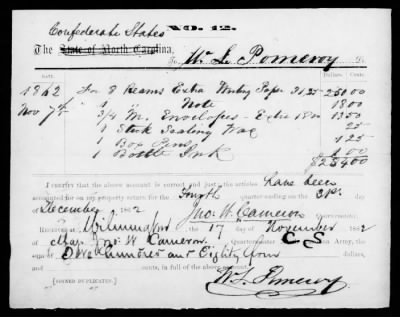 NO. 12.
Confederate States
The State of North Carolina,
To W. L. Pomeroy Dr.
DATE. Dollars. Cents.
1862 For 8 Reams Extra Writing Paper 31.25 250.00
Nov 7th 1 " Note " 18.00
3/4 M. Envelopes - Extra 18 m 13.50
1 Stick Sealing Wax 25
1 Box Pens 1.25
1 Bottle Ink 1.00
$284.00
I certify that the above account is correct, and the articles have been
accounted for on my property return for the Fourth quarter ending on the 31st day
of December 1862 Jno. W. Cameron
Quartermaster.
Received at Wilmington the 17 of November 1862
of Maj. Jno. W Cameron Quartermaster C S Army, the
sum of Two Hundred and Eighty four dollars
and cents, in full of the above account.
W. L. Pomeroy
[SIGNED DUPLICATES.]